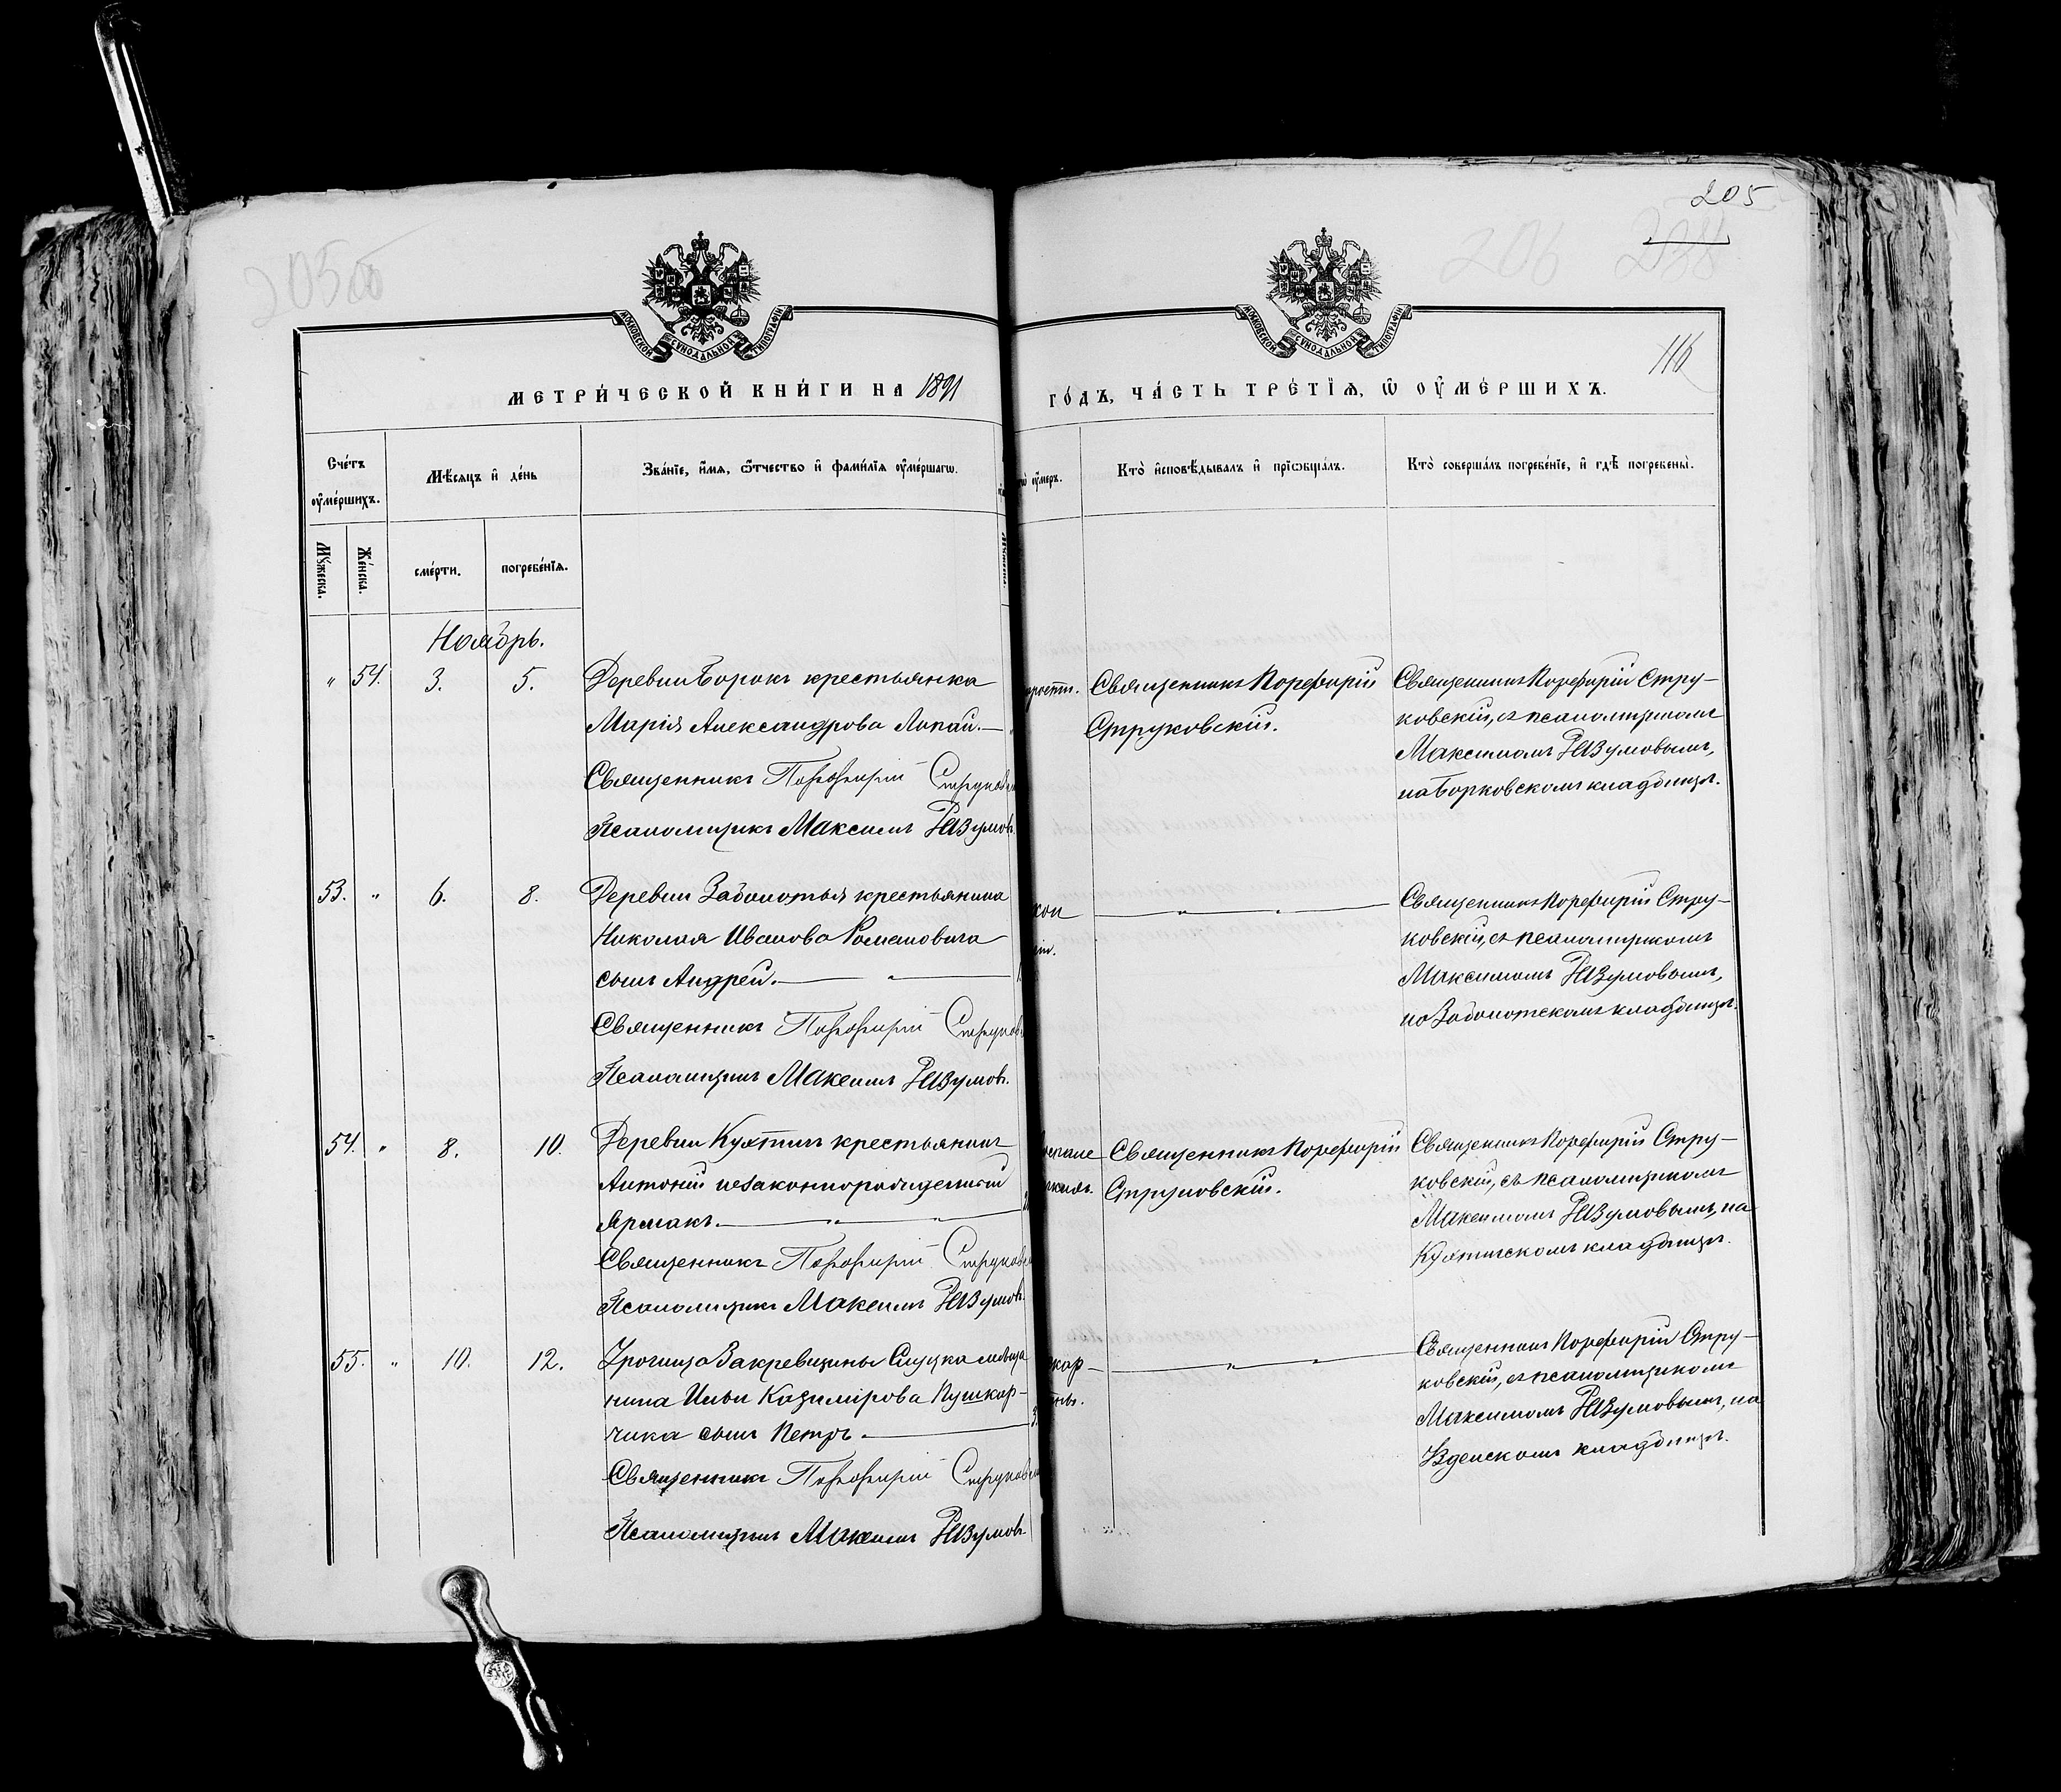 205
116
МОСКОВСКОЙ СѴНОДАЛЬНОЙ ТИПОГРАФІИ
МОСКОВСКОЙ СѴНОДАЛЬНОЙ ТИПОГРАФІИ
МЕТРИ́ЧЕСКОЙ КНИ́ГИ НА 1891
ГО́ДЪ, ЧА́СТЬ ТРЕ́ТЇѦ, Ѡ҆ ОУ҆МЕ́РШИХЪ.
Сче́тъ оу҆ме́ршихъ.
Мѣ́сѧцъ и҆ де́нь
Зва́нїе, и҆́мѧ, ѻ҆́тчество и҆ фами́лїѧ оу҆ме́ршагѡ.
оу҆́меръ.
Кто̀ и҆сповѣ́дывалъ и҆ прїѡбща́лъ.
Кто̀ соверша́лъ погребе́нїе, и҆ гдѣ̀ погребены̀.
Мꙋ́жеска.
Же́нска.
сме́рти.
погребе́нїѧ.
Ноябрь.
" 54. 3. 5.
Деревни Борокъ крестьянка
Марія Александрова Лопай.—
Священникъ Порфирій
Псаломщикъ Максимъ Разумовъ.
Священникъ Порфирій
Струковскій.
Священникъ Порфирій Стру-
ковскій, съ псаломщикомъ
Максимомъ Разумовымъ,
на Борковскомъ кладбищѣ.
53. " 6. 8.
Деревни Заболотья крестьянина
Николая Иванова Романовича
сынъ Андрей.— "
Священникъ Порфирій
Псаломщикъ Максимъ Разумовъ.
— " " —
Священникъ Порфирій Стру-
ковскій, съ псаломщикомъ
Максимомъ Разумовымъ,
на Заболотскомъ кладбищѣ.
54. " 8. 10.
Деревни Кухтичъ крестьянинъ
Антоній незаконнорожденный
Ярмакъ.— " "
Священникъ Порфирій
Псаломщикъ Максимъ Разумовъ
Священникъ Порфирій
Струковскій.
Священникъ Порфирій Стру-
ковскій, съ псаломщикомъ
Максимомъ Разумовымъ, на
Кухтичскомъ кладбищѣ.
55. " 10. 12.
Урочища Закревщины Слуцка мѣща
нина Ильи Казимірова Пушкар-
чика сынъ Петръ.—
Священникъ Порфирій
Псаломщикъ Максимъ Разумовъ
— " " —
Священникъ Порфирій Стру-
ковскій, съ псаломщикомъ
Максимомъ Разумовымъ, на
Узденскомъ кладбищѣ.